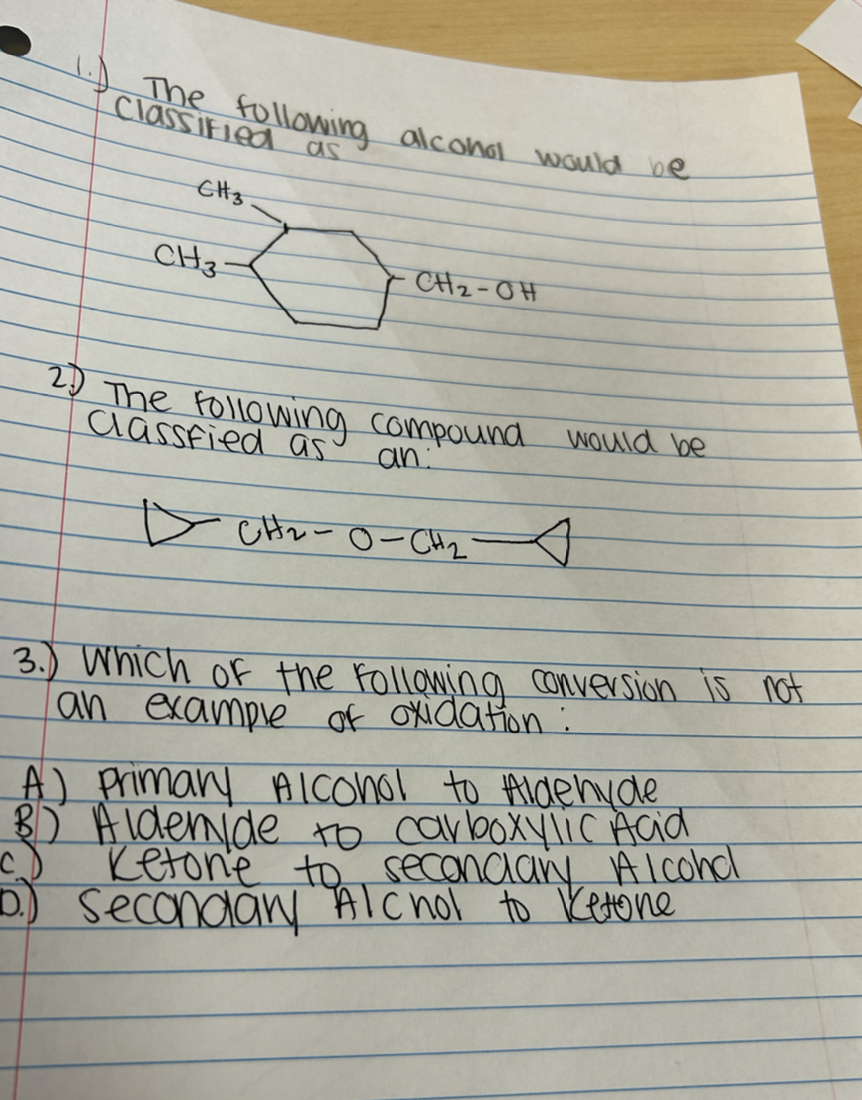 1.) The following alcohol would be
classified as
CH3
CH3
CH2-OH
2.) The following compound would be
classfied as an:
CH2-O-CH2
3.) Which of the following conversion is not
an example of oxidation:
A) primary Alcohol to Aldehyde
B) Aldehyde to carboxylic Acid
C.) Ketone to secondary Alcohol
D.) secondary Alcnol to Ketone